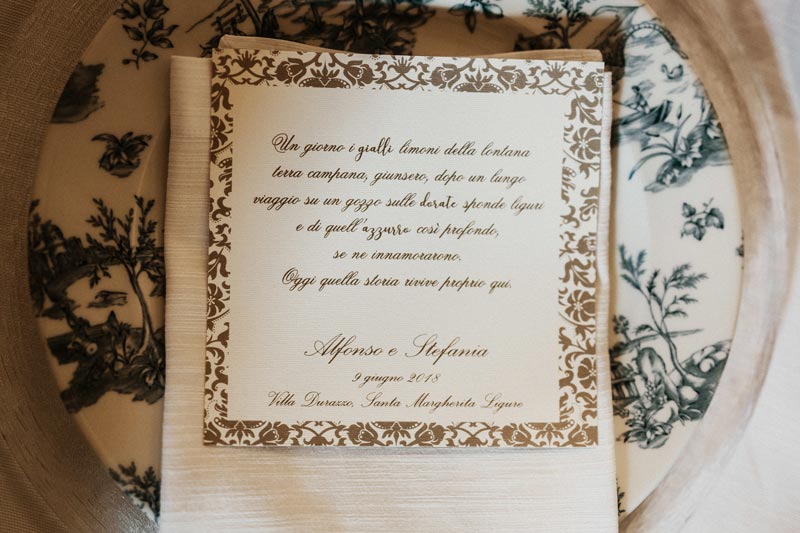 Un giorno i gialli limoni della lontana
terra campana, giunsero, dopo un lungo
viaggio su un gozzo sulle dorate sponde liguri
e di quell'azzurro così profondo,
se ne innamorarono.
Oggi quella storia rivive proprio qui.
Alfonso e Stefania
9 giugno 2018
Villa Durazzo, Santa Margherita Ligure